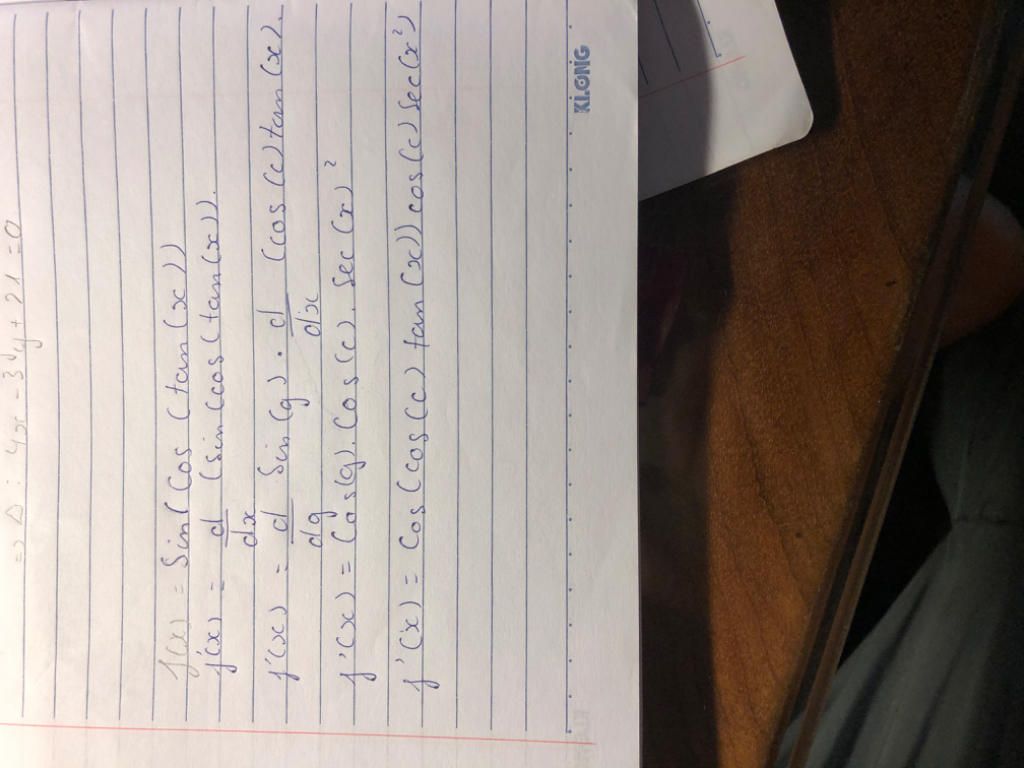 => Δ : 4x - 3y + 21 = 0
f(x) = Sin(Cos(tan(x))
f'(x) = d/dx (sin(cos(tan(x)).
f'(x) = d/dg Sin(g) . d/dx (cos(c)tan(x).
f'(x) = Cos(g). Cos(c). Sec(x)²
f'(x) = Cos(cos(c) tan(x)) cos(c) Sec(x²)
KLONG